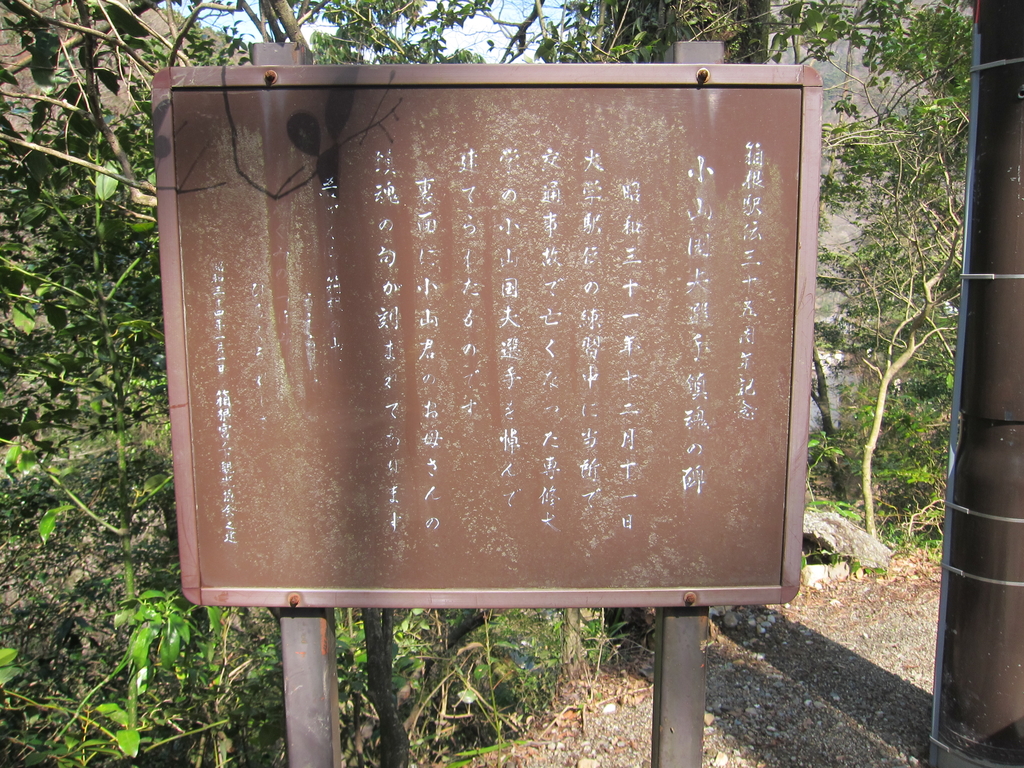 箱根駅伝三十五周年記念
小山国夫選手鎮魂の碑
昭和三十一年十二月十一日
大学駅伝の練習中に当所で
交通事故で亡くなった専修大
学の小山国夫選手を悼んで
建てられたものです
裏面に小山君のお母さんの
鎮魂の句が刻まれております
箱根 山
昭和 十四年一月一日 箱根宮ノ下観光協会之建